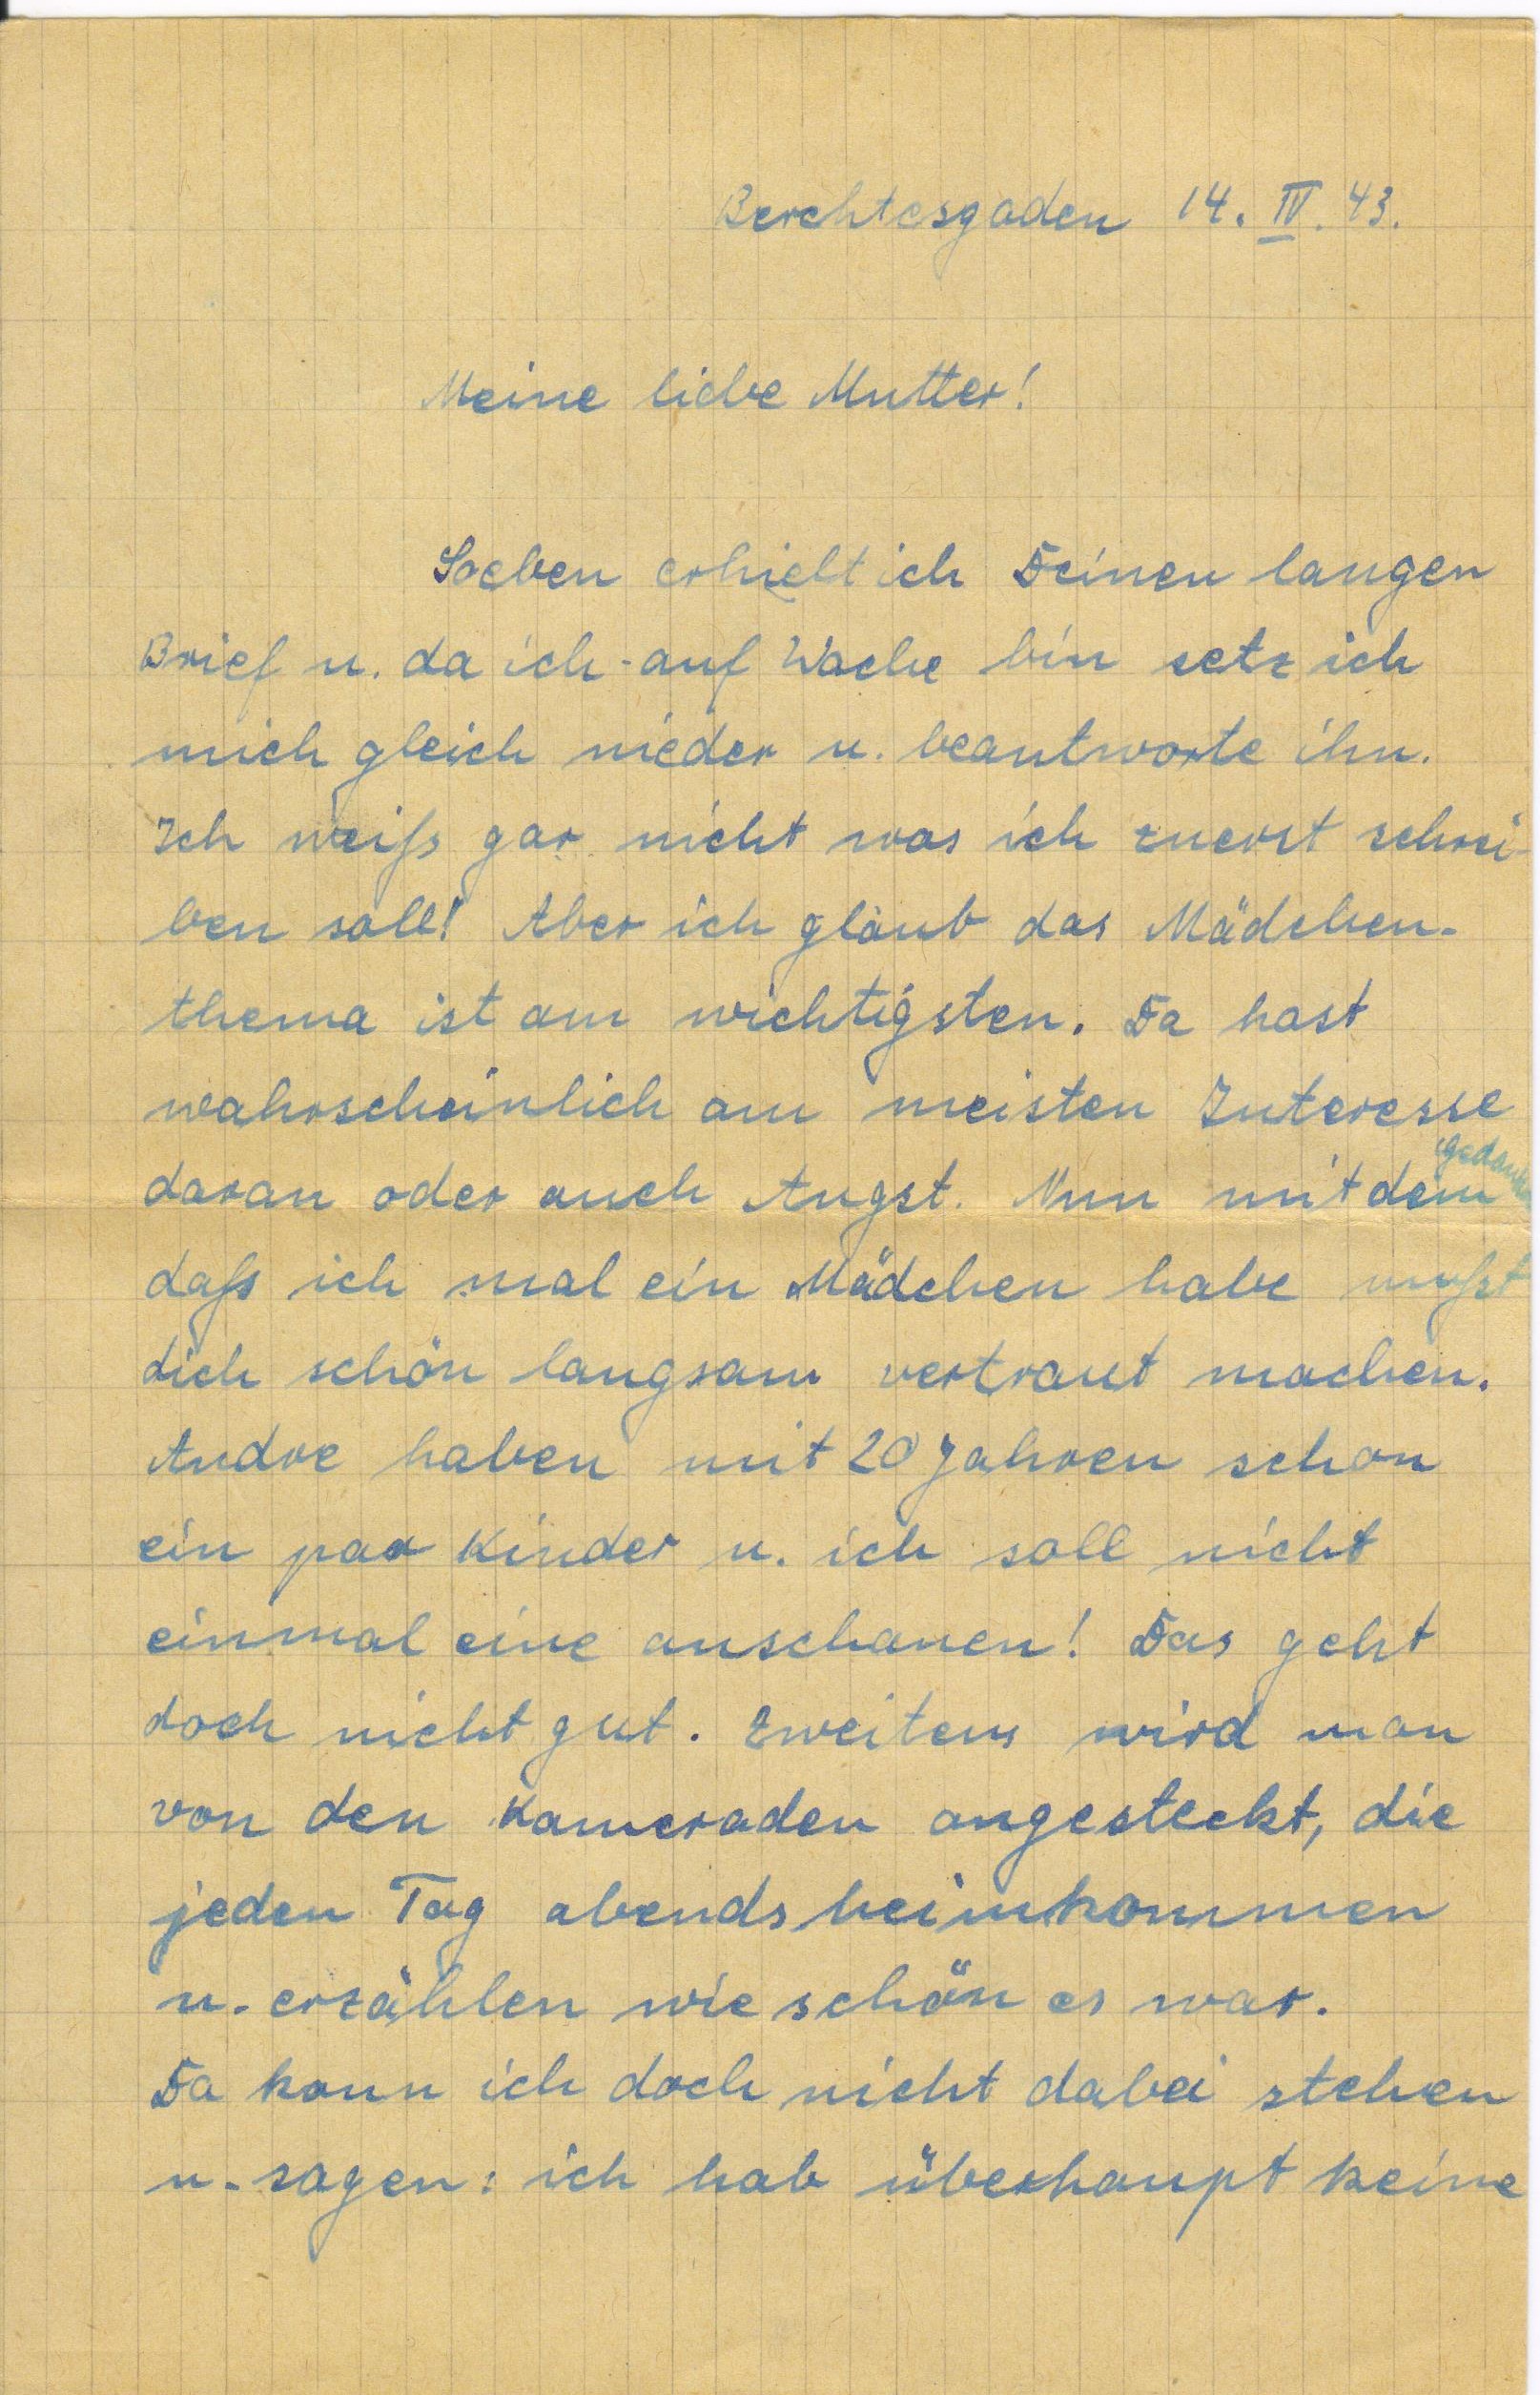 Berchtesgaden 14. IV. 43.
Meine liebe Mutter!
Soeben erhielt ich Deinen langen
Brief u. da ich auf Wache bin setz ich
mich gleich nieder u. beantworte ihn.
Ich weiß gar nicht was ich zuerst schrei-
ben soll! Aber ich glaub das Mädchen-
thema ist am wichtigsten. Da hast
wahrscheinlich am meisten Interesse
gedanken
daran oder auch Angst. Nun mit dem
daß ich mal ein Mädchen habe mußt
dich schön langsam vertraut machen.
Andre haben mit 20 Jahren schon
ein paar Kinder u. ich soll nicht
einmal eine anschauen! Das geht
doch nicht gut. Zweitens wird man
von den Kameraden angesteckt, die
jeden Tag abends heimkommen
u. erzählen wie schön es war.
Da kann ich doch nicht dabei stehen
u. sagen: ich hab überhaupt keine